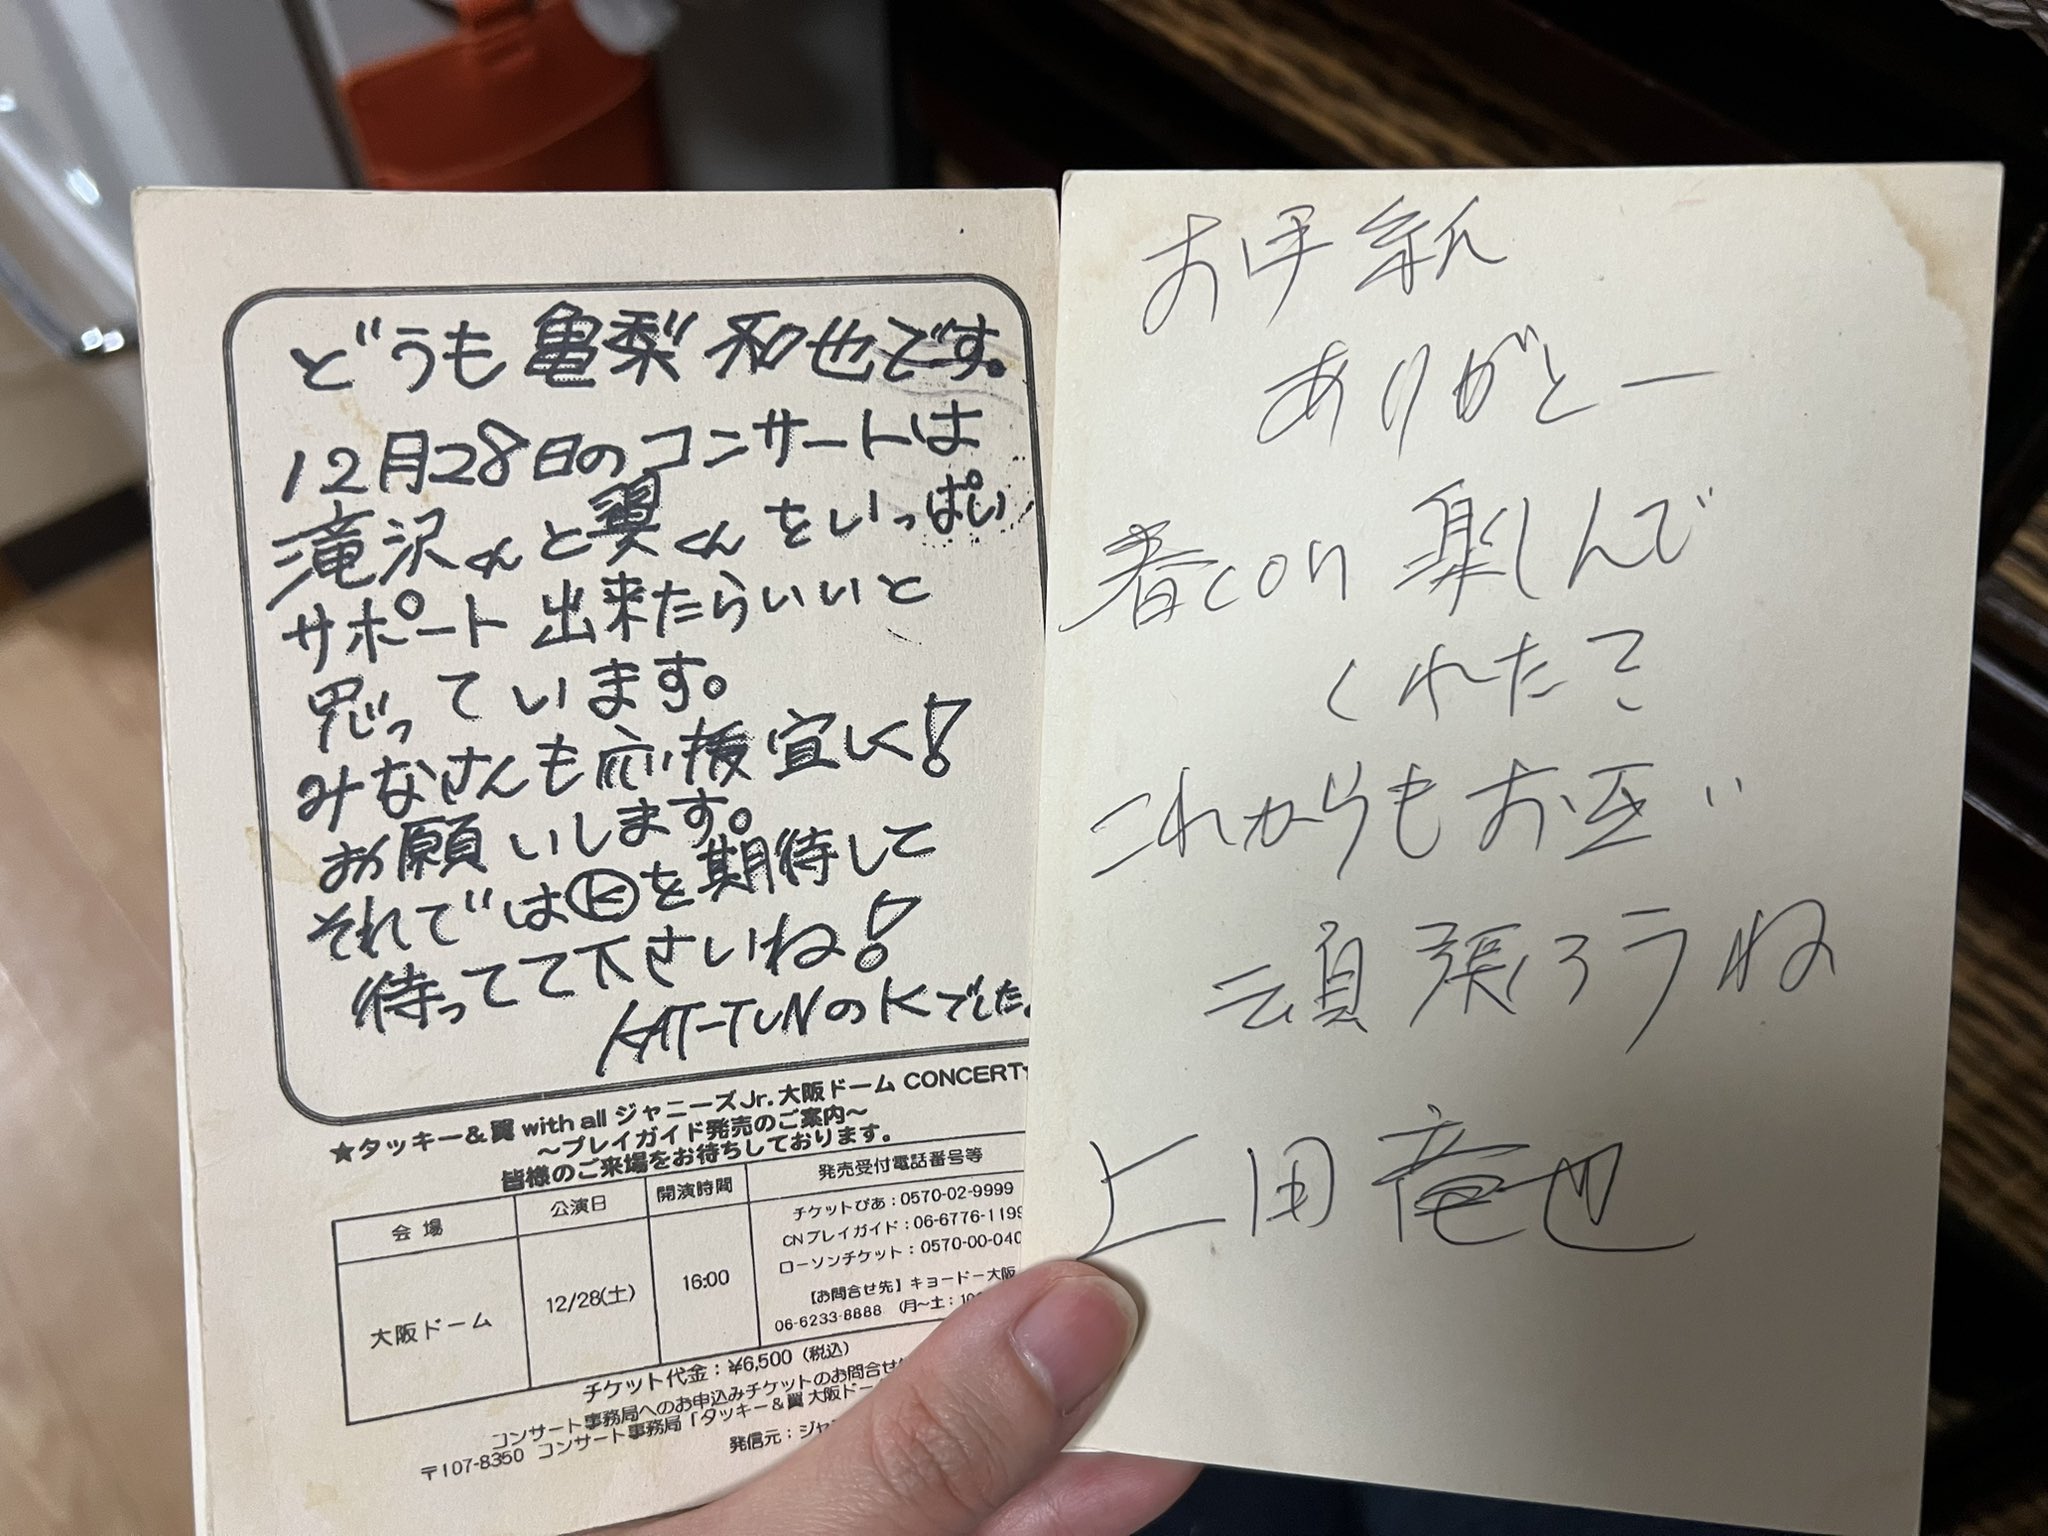 どうも亀梨和也です。
12月28日のコンサートは
滝沢くんと翼くんをいっぱい
サポート出来たらいいと
思っています。
みなさんも応援宜しく!
お願いします。
それではⓀを期待して
待ってて下さいね!
KAT-TUNのKでした。
★タッキー&翼 with all ジャニーズJr.大阪ドーム CONCERT
~プレイガイド発売のご案内~
皆様のご来場をお待ちしております。
会場 公演日 開演時間 発売受付電話番号等
大阪ドーム 12/28(土) 16:00
チケットぴあ:0570-02-9999
CNプレイガイド:06-6776-1199
ローソンチケット:0570-00-040
【お問合せ先】キョードー大阪
06-6233-8888 (月~土:10
チケット代金:¥6,500(税込)
コンサート事務局へのお申込みチケットのお問合せ
〒107-8350 コンサート事務局「タッキー&翼 大阪ドー
発信元:ジャ
お手紙
ありがとー
春con 楽しんで
くれたて
これからもお互い
頑張ろうね
上田竜也